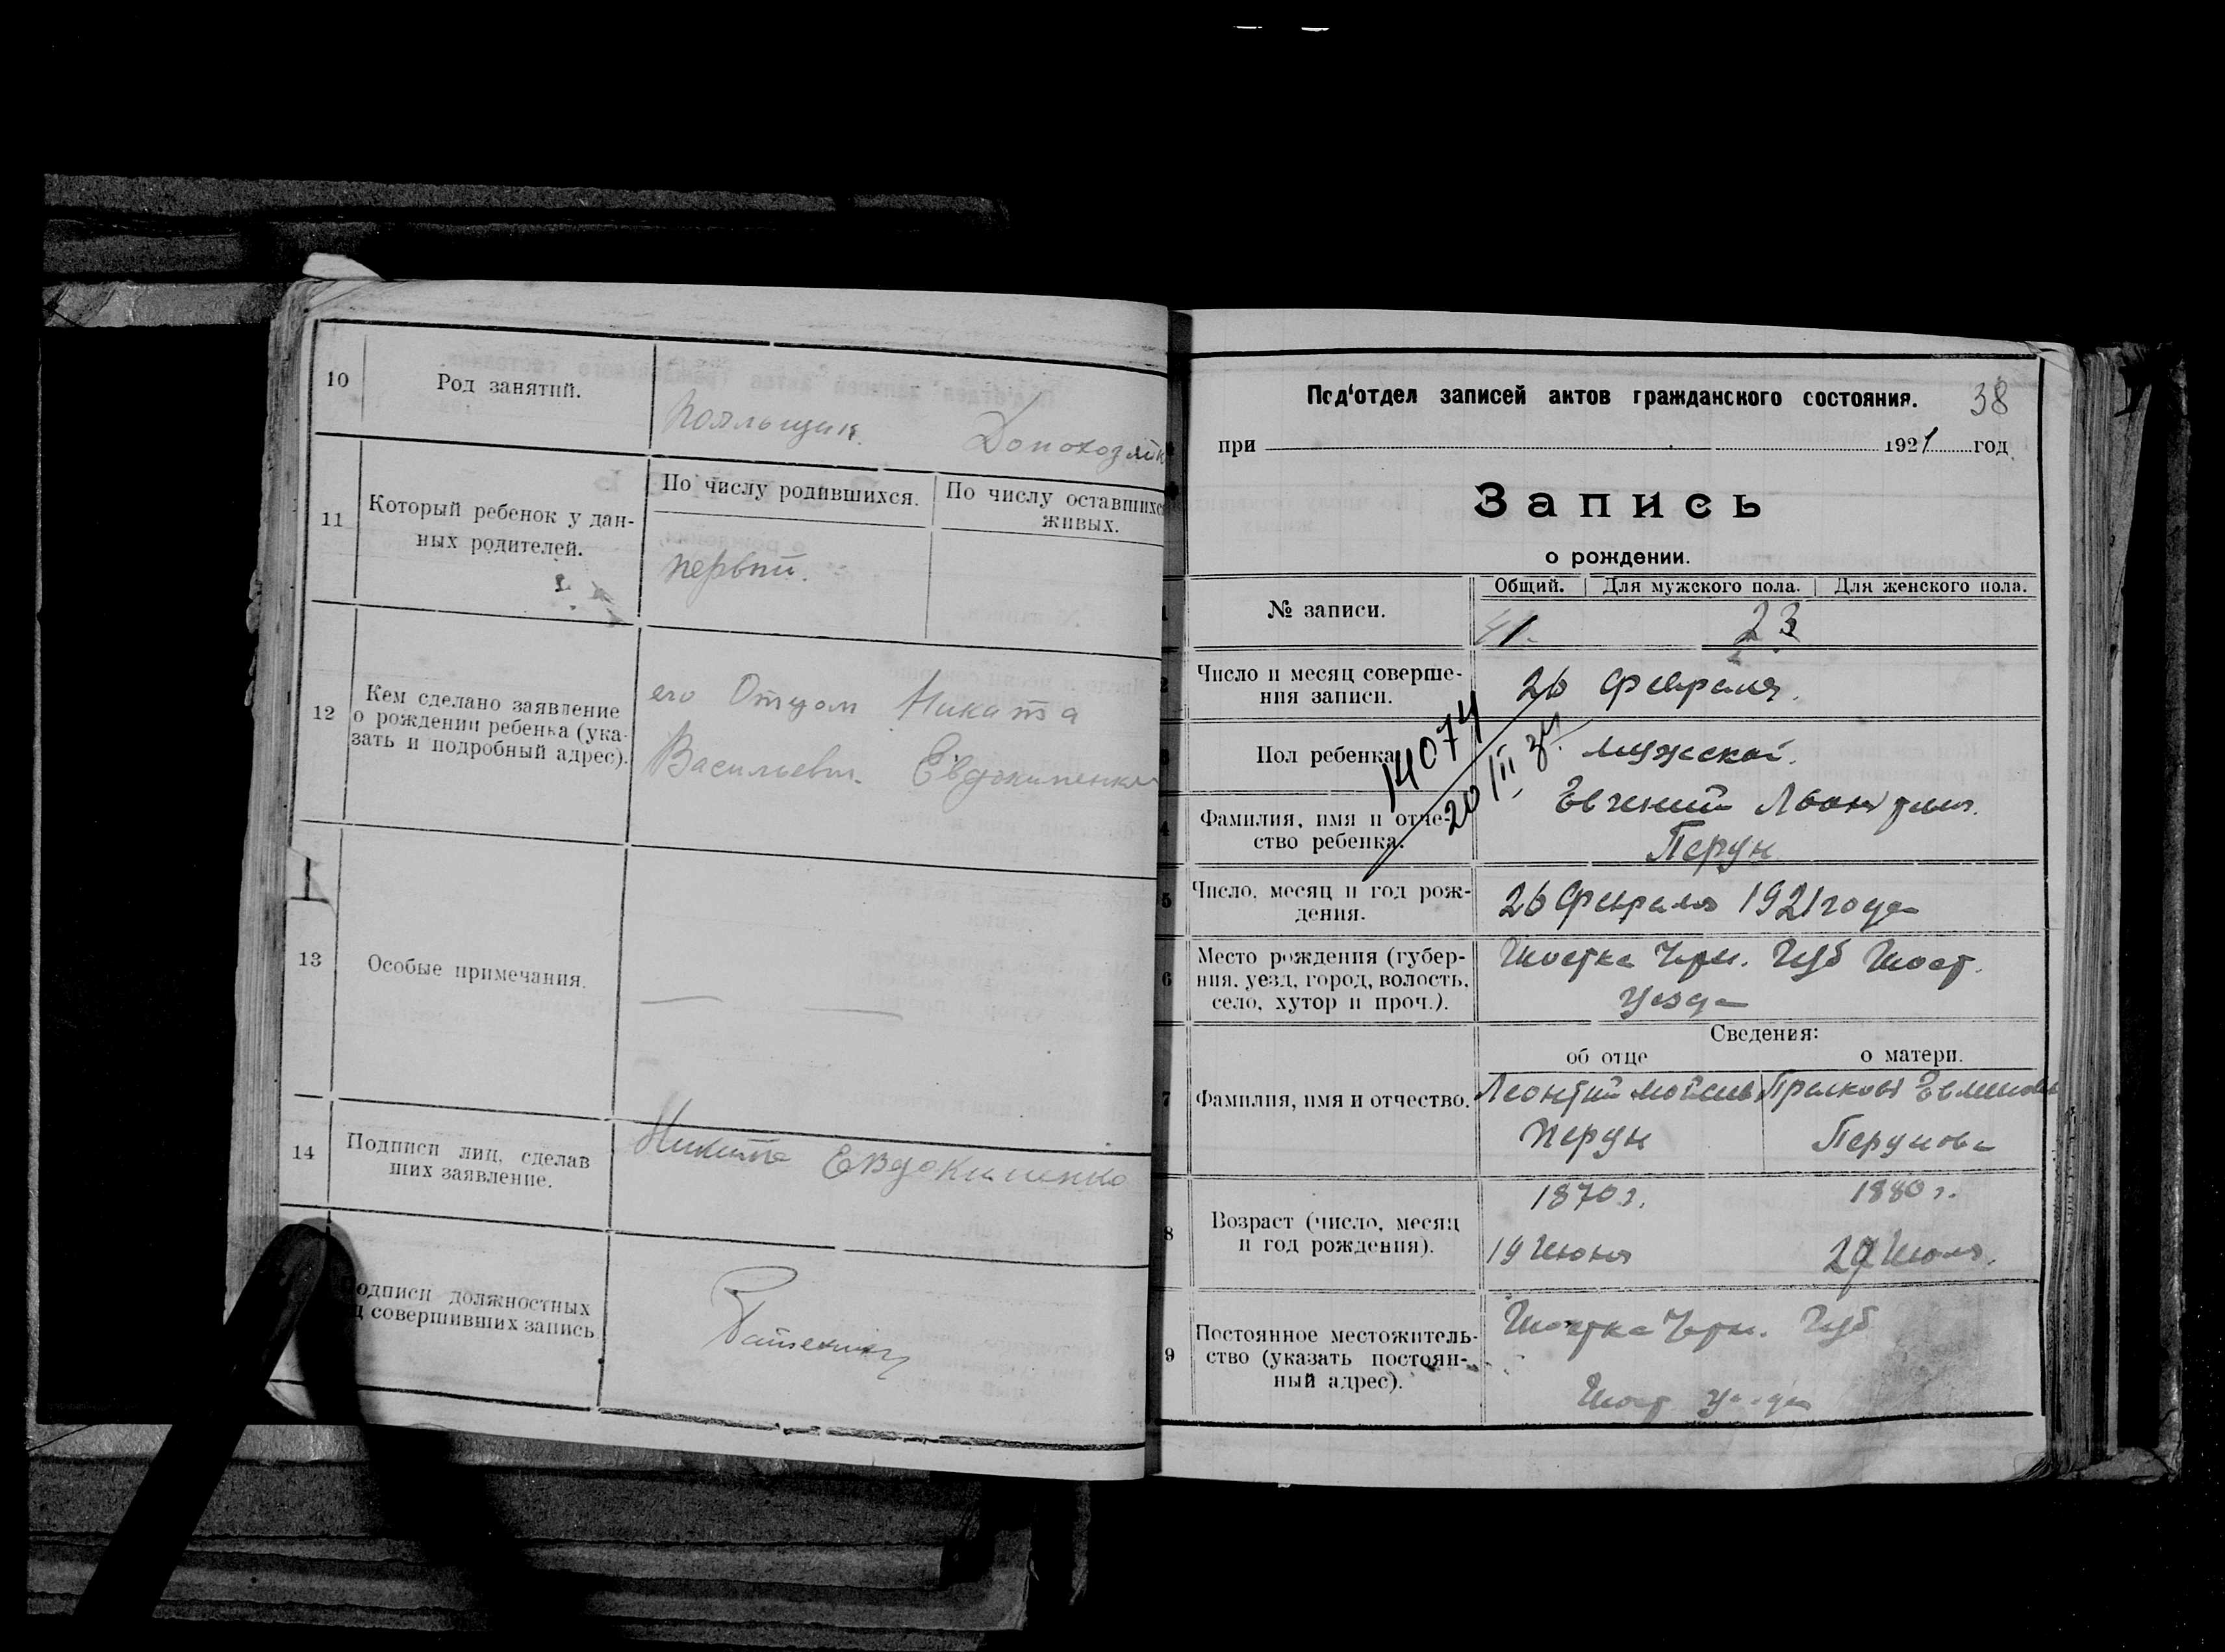 10
Род занятий.
Пояльщик.
Домохозяйк
11
Который ребенок у дан-
ных родителей.
По числу родившихся.
По числу оставшихся
живых.
первый.
12
Кем сделано заявление
о рождении ребенка (ука-
зать и подробный адрес).
его Отцом Никита
Васильевич. Евдокименко
13
Особые примечания.
14
Подписи лиц, сделав
ших заявление.
Никита Евдокименко
одписи должностных
ц совершивших запись
Под‘отдел записей актов гражданского состояния.
38
при 1921 год
Запись
о рождении.
Общий. Для мужского пола. Для женского пола.
1
№ записи.
41. 23
2
Число и месяц соверше-
ния записи.
26 февраля.
3
Пол ребенка
мужской.
14074
20/II 34.
4
Фамилия, имя и отче-
ство ребенка.
Евгений
Перун
5
Число, месяц и год рож-
дения.
26 февраля 1921 года
6
Место рождения (губер-
ния, уезд, город, волость,
село, хутор и проч.).
Шостка Черн. Губ Шост.
Уезда
Сведения:
об отце
о матери.
7
Фамилия, имя и отчество.
Леонтий Мойсеев
Перун
Прасковья
Перунова
8
Возраст (число, месяц
и год рождения).
1870 г.
19 Июня
1880 г.
29 Июля.
9
Постоянное местожитель-
ство (указать постоян-
ный адрес).
Шостка Черн. Губ
Шост уезда